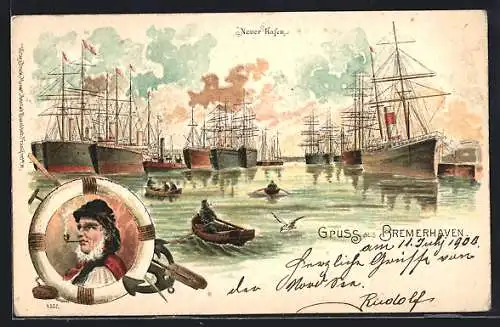 Neuer Hafen
Gruss aus Bremerhaven.
am 11. July 1900
Herzliche Grüsse von
der Nord See.
Rudolf